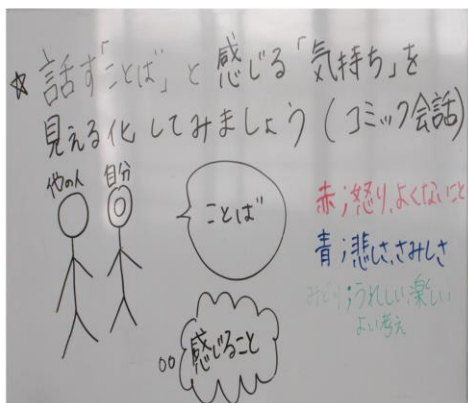 ☆ 話す「ことば」と感じる「気持ち」を
見える化してみましょう(コミック会話)
他の人
自分
ことば
赤；怒り、よくないこと
青；悲しさ、さみしさ
みどり；うれしい、楽しい
よい考え
感じること